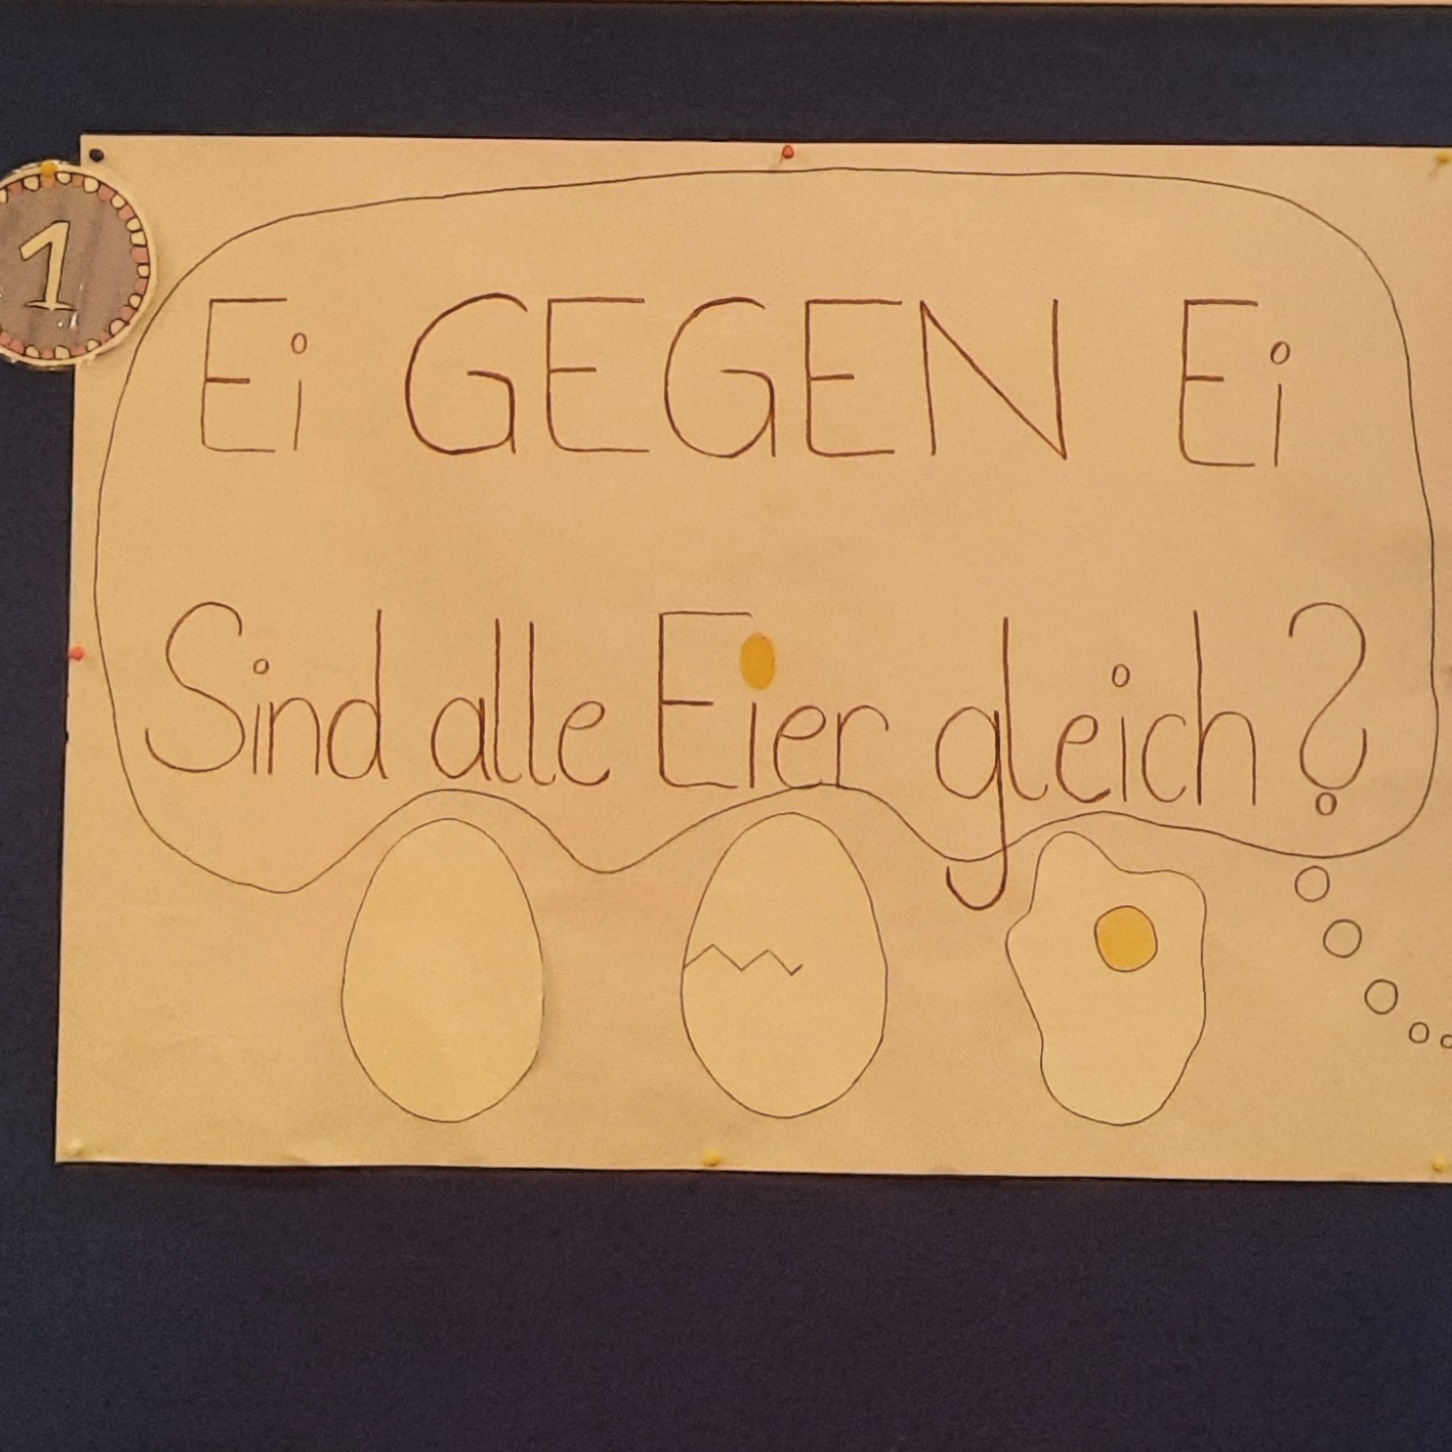 1
Ei GEGEN Ei
Sind alle Eier gleich?